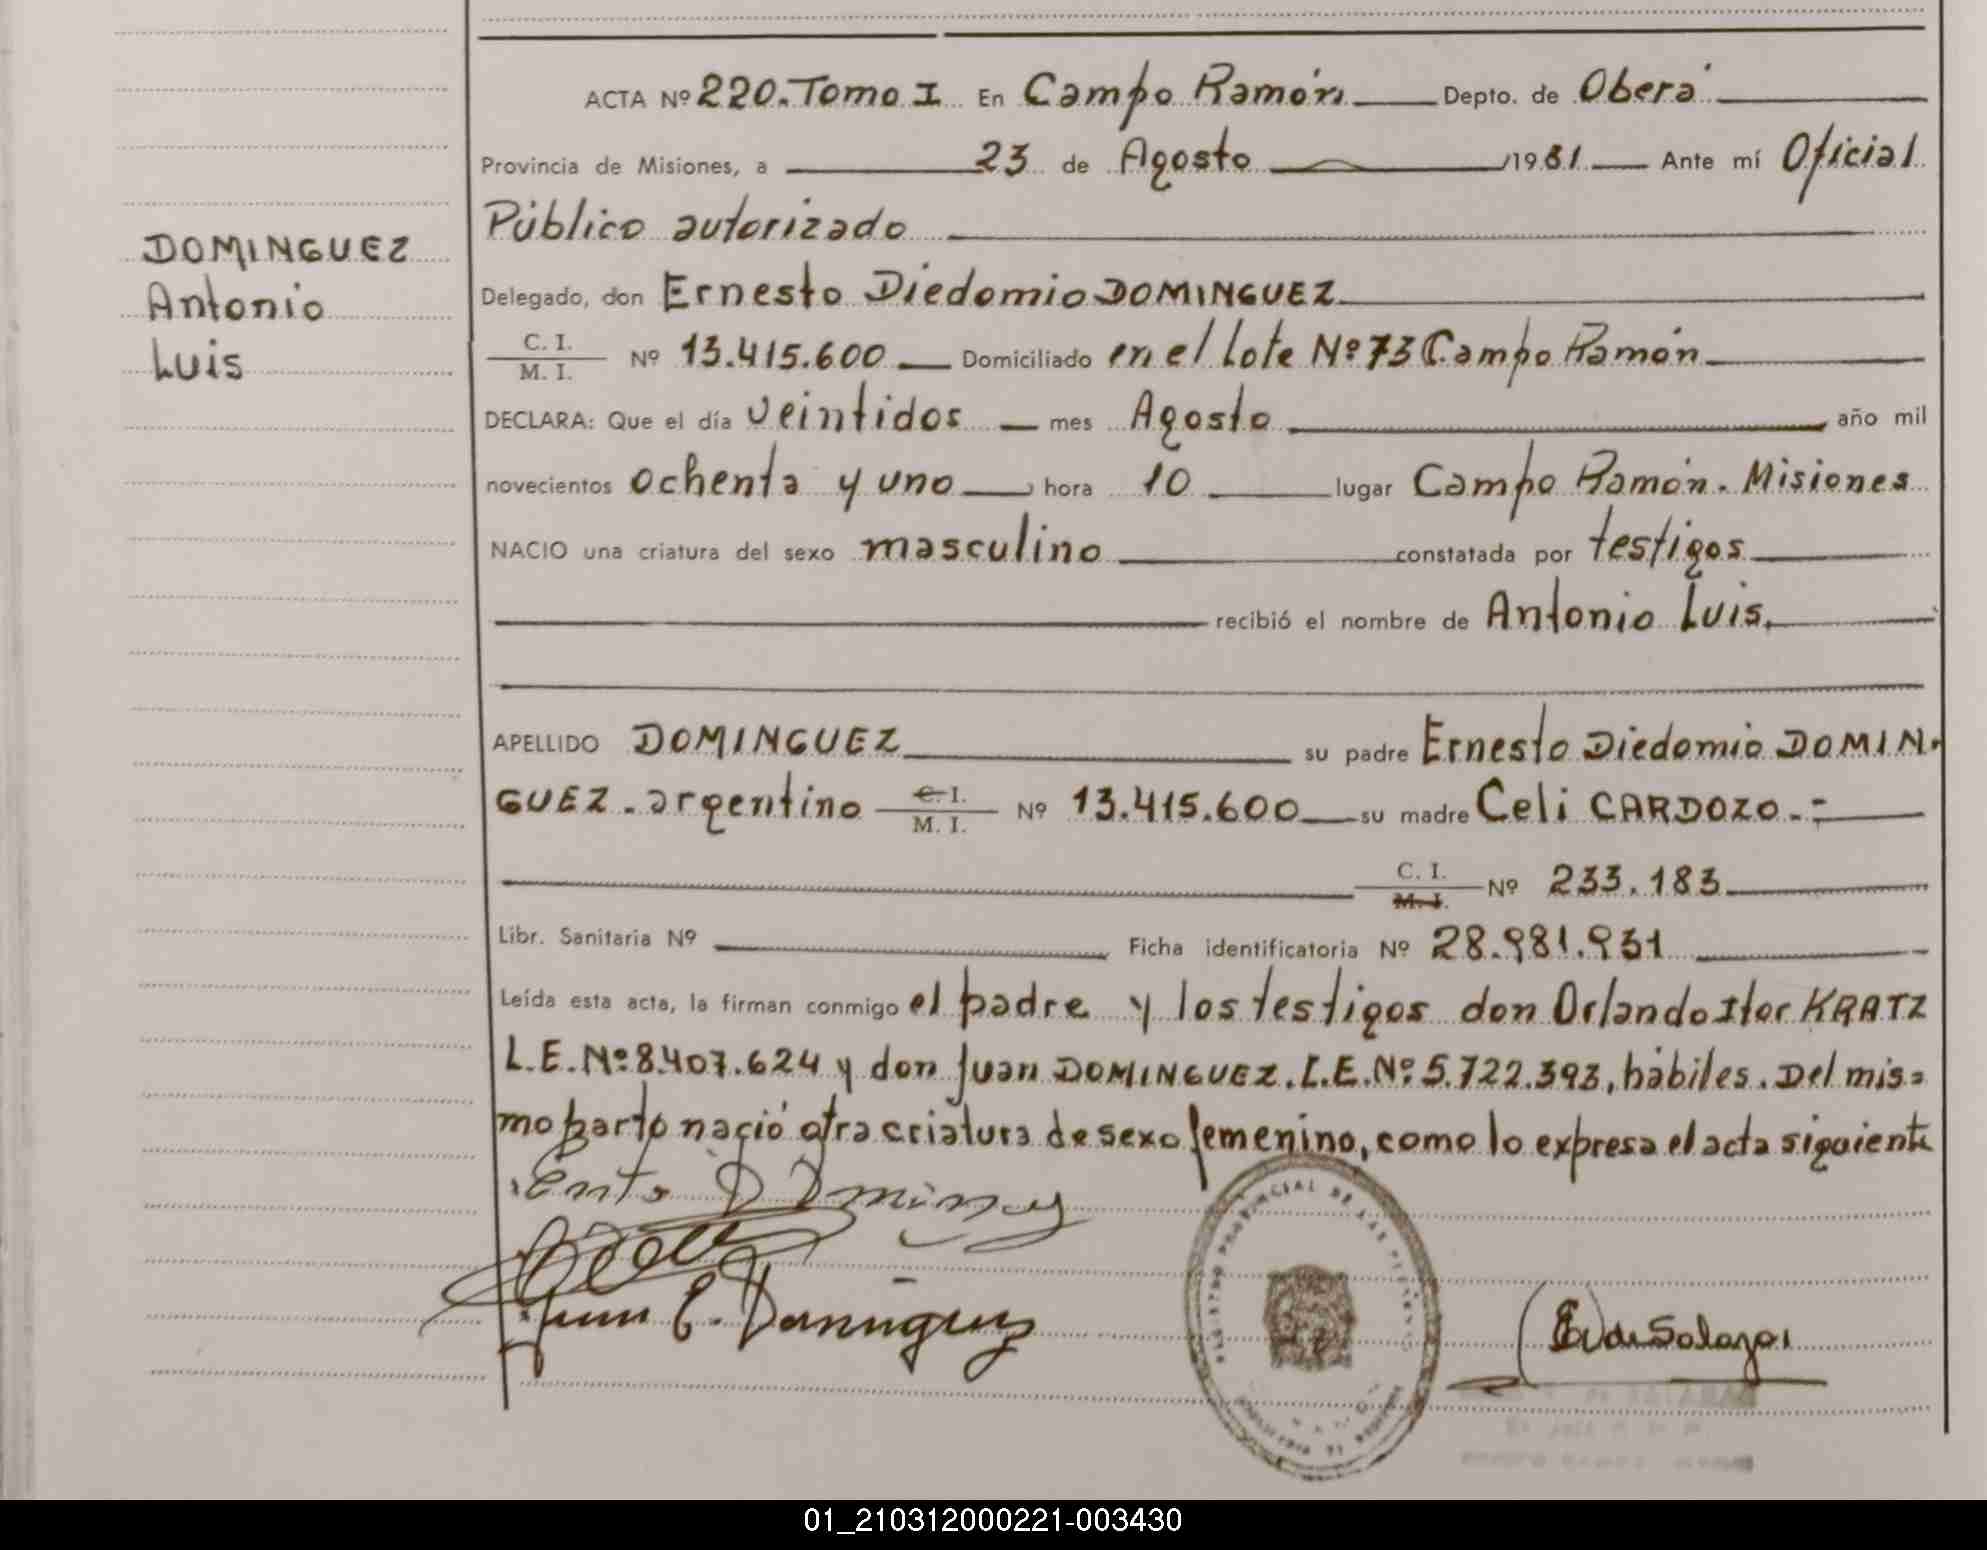 ACTA Nº 220. Tomo I En Campo Ramón Depto. de Oberá
Provincia de Misiones, a 23 de Agosto /1981 Ante mí Oficial
Público autorizado
DOMINGUEZ
Antonio
Luis
Delegado, don Ernesto Diedomio DOMINGUEZ
C. I.
M. I. Nº 13.415.600 Domiciliado en el lote Nº 73 Campo Ramón
DECLARA: Que el día veintidos mes Agosto año mil
novecientos ochenta y uno hora 10 lugar Campo Ramón. Misiones
NACIO una criatura del sexo masculino constatada por testigos
recibió el nombre de Antonio Luis.
APELLIDO DOMINGUEZ su padre Ernesto Diedomio DOMIN-
GUEZ. argentino C. I. M. I. Nº 13.415.600 su madre Celi CARDOZO.-
C. I. M. I. Nº 233.183
Libr. Sanitaria Nº Ficha identificatoria Nº 28.981.931
Leída esta acta, la firman conmigo el padre y los testigos don Orlando Itor KRATZ
L.E.Nº 8.407.624 y don Juan DOMINGUEZ. L.E.Nº 5.722.393, hábiles. Del mis=
mo parto nació otra criatura de sexo femenino, como lo expresa el acta siguiente
Juan C. Dominguez
REGISTRO PROVINCIAL DE LAS PERSONAS
de Salazar
01_210312000221-003430